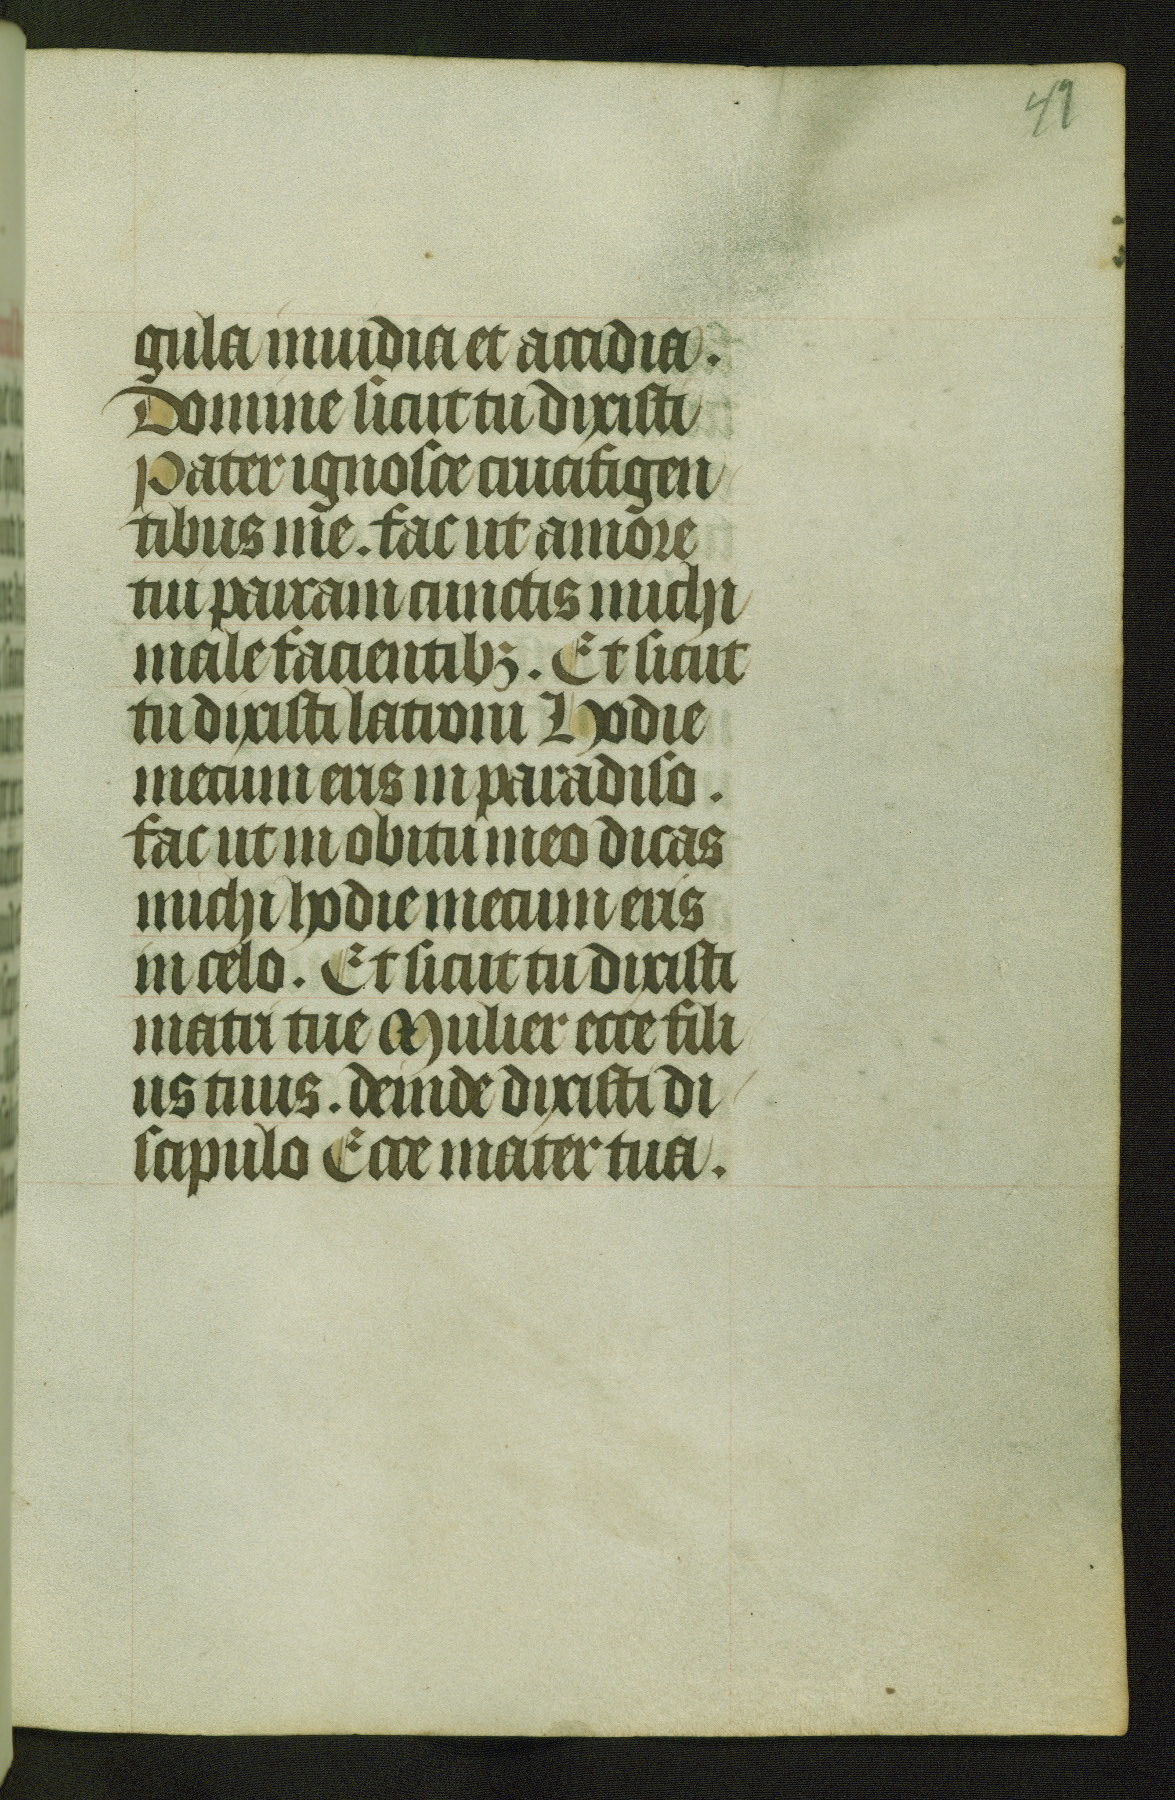 41
gula inuidia et accidia.
Domine sicut tu dixisti
Pater ignosce crucifigen
tibus me. fac ut amore
tui parcam cunctis michi
malefacientibꝫ. Et sicut
tu dixisti latroni Hodie
mecum eris in paradiso.
fac ut in obitu meo dicas
michi hodie mecum eris
in celo. Et sicut tu dixisti
matri tue Mulier ecce fili
us tuus. deinde dixisti di
scipulo Ecce mater tua.